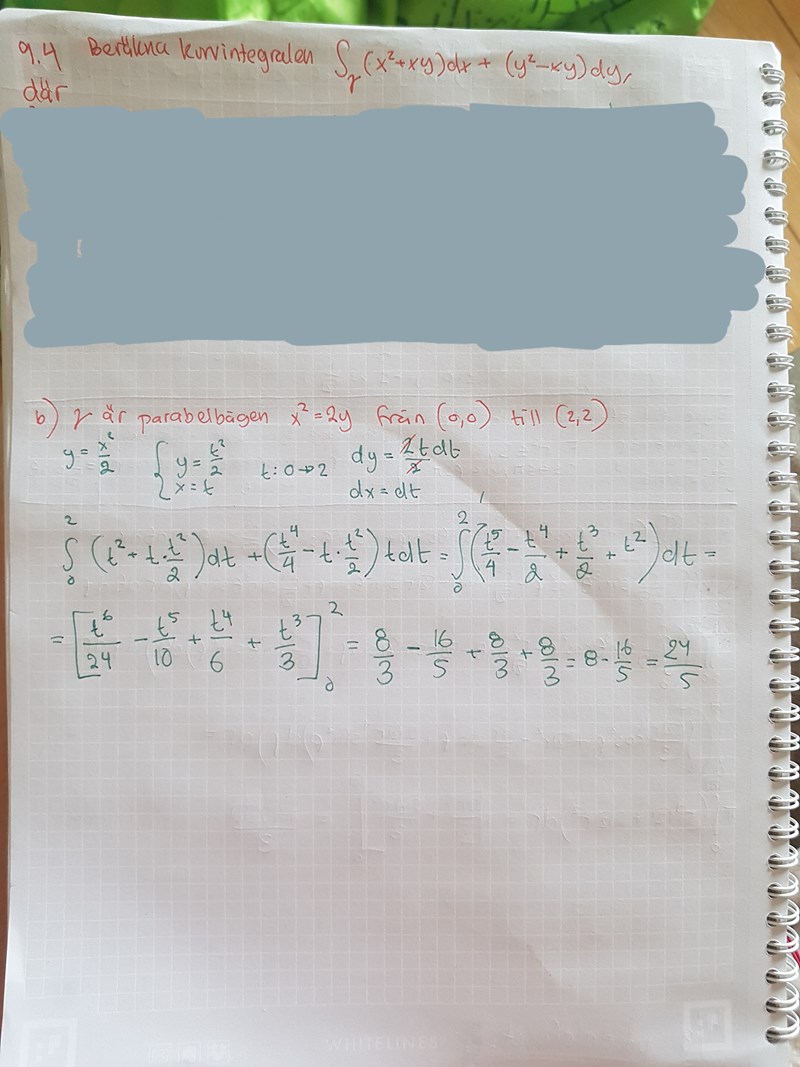 9.4 Beräkna kurvintegralen ∫_γ (x²+xy)dx + (y²-xy)dy,
där
b) γ är parabelbågen x²=2y från (0,0) till (2,2)
y = x²/2 { y = t²/2 x = t t: 0→2 dy = 2t/2 dt dx = dt
∫₀² (t² + t·t²/2)dt + (t⁴/4 - t·t²/2) t dt = ∫₀² (t⁵/4 - t⁴/2 + t³/2 + t²)dt =
= [t⁶/24 - t⁵/10 + t⁴/6 + t³/3]₀² = 8/3 - 16/5 + 8/3 + 8/3 = 8 - 16/5 = 24/5
WHITELINES